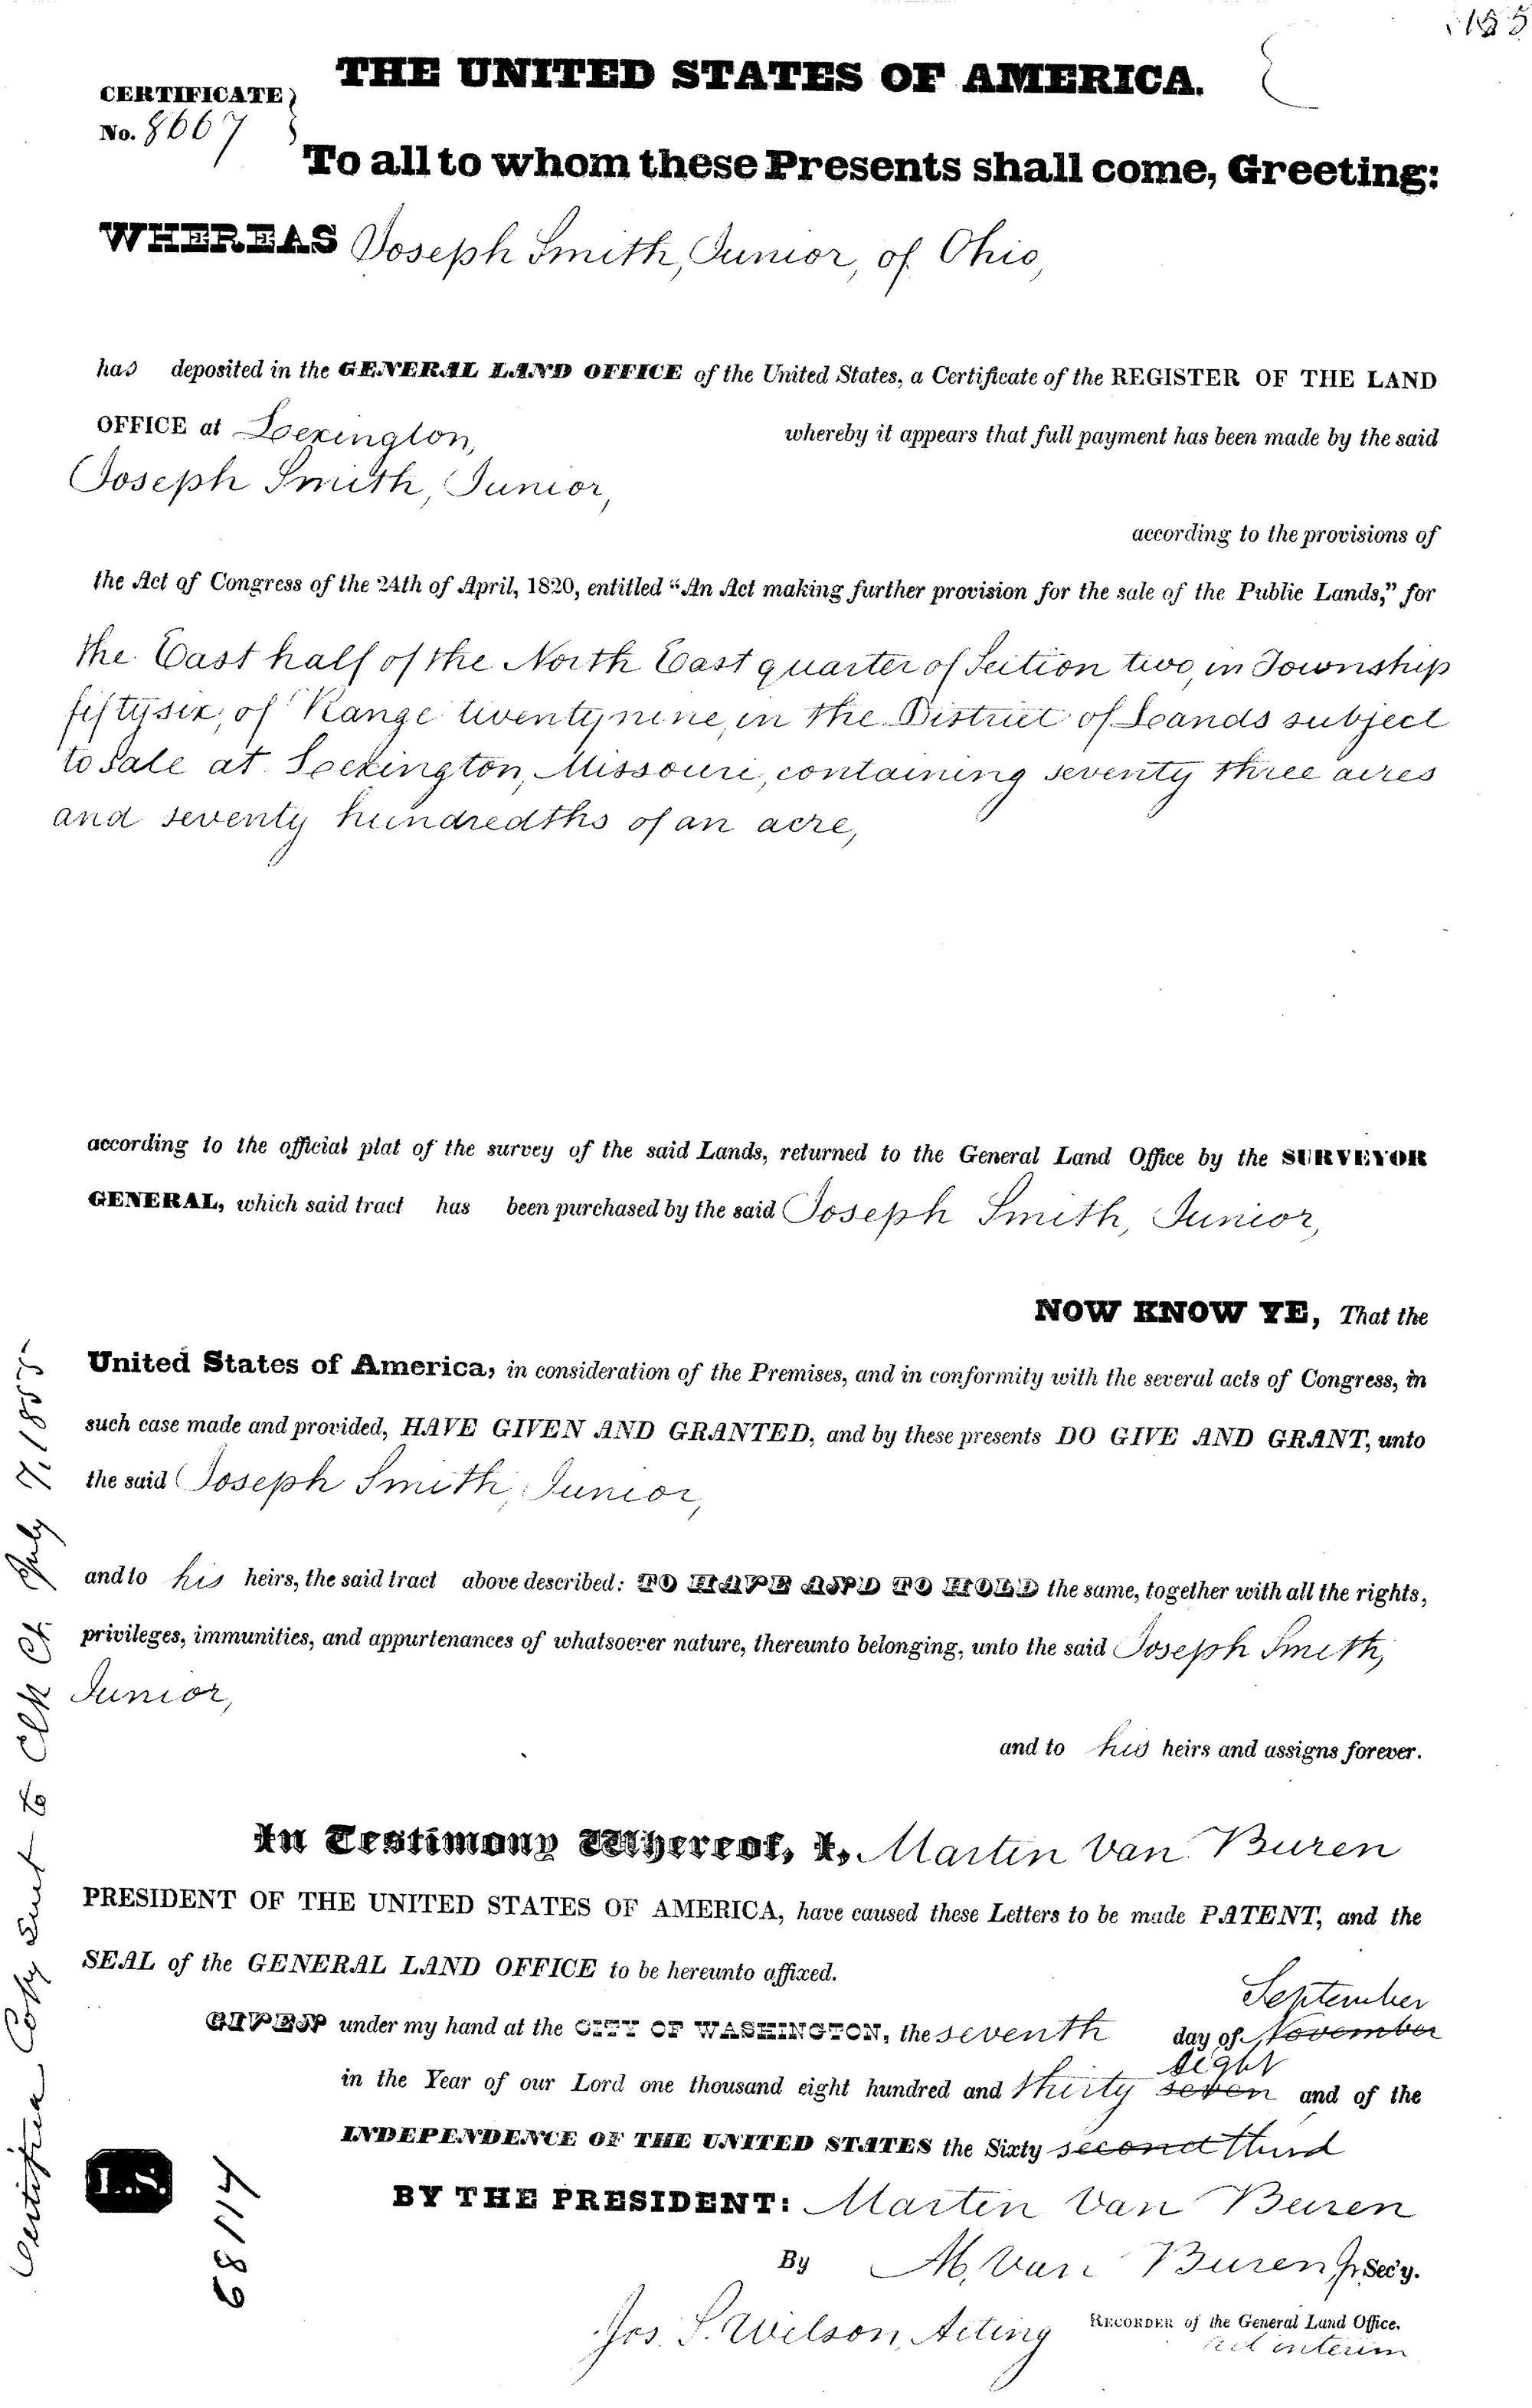 155
THE UNITED STATES OF AMERICA.
CERTIFICATE
No. 8667
To all to whom these Presents shall come, Greeting:
WHEREAS Joseph Smith, Junior, of Ohio,
has deposited in the GENERAL LAND OFFICE of the United States, a Certificate of the REGISTER OF THE LAND
OFFICE at Lexington, whereby it appears that full payment has been made by the said
Joseph Smith, Junior,
according to the provisions of
the Act of Congress of the 24th of April, 1820, entitled “An Act making further provision for the sale of the Public Lands,” for
the East half of the North East quarter of Section two, in Township
fifty six, of Range twenty nine, in the District of Lands subject
to Sale at Lexington, Missouri, containing seventy three acres
and seventy hundredths of an acre,
according to the official plat of the survey of the said Lands, returned to the General Land Office by the SURVEYOR
GENERAL, which said tract has been purchased by the said Joseph Smith, Junior,
NOW KNOW YE, That the
United States of America, in consideration of the Premises, and in conformity with the several acts of Congress, in
such case made and provided, HAVE GIVEN AND GRANTED, and by these presents DO GIVE AND GRANT, unto
the said Joseph Smith, Junior,
and to his heirs, the said tract above described: TO HAVE AND TO HOLD the same, together with all the rights,
privileges, immunities, and appurtenances of whatsoever nature, thereunto belonging, unto the said Joseph Smith,
Junior,
and to his heirs and assigns forever.
In Testimony Whereof, I, Martin Van Buren
PRESIDENT OF THE UNITED STATES OF AMERICA, have caused these Letters to be made PATENT, and the
SEAL of the GENERAL LAND OFFICE to be hereunto affixed.
September
GIVEN under my hand at the CITY OF WASHINGTON, the seventh day of November
eight
in the Year of our Lord one thousand eight hundred and thirty seven and of the
INDEPENDENCE OF THE UNITED STATES the Sixty second third
BY THE PRESIDENT: Martin Van Buren
By M. Van Buren Jr Sec'y.
Jos. S. Wilson, Acting RECORDER of the General Land Office.
ad interim
L.S.
68114
Certified Copy Sent to Clk Ct July 7, 1885